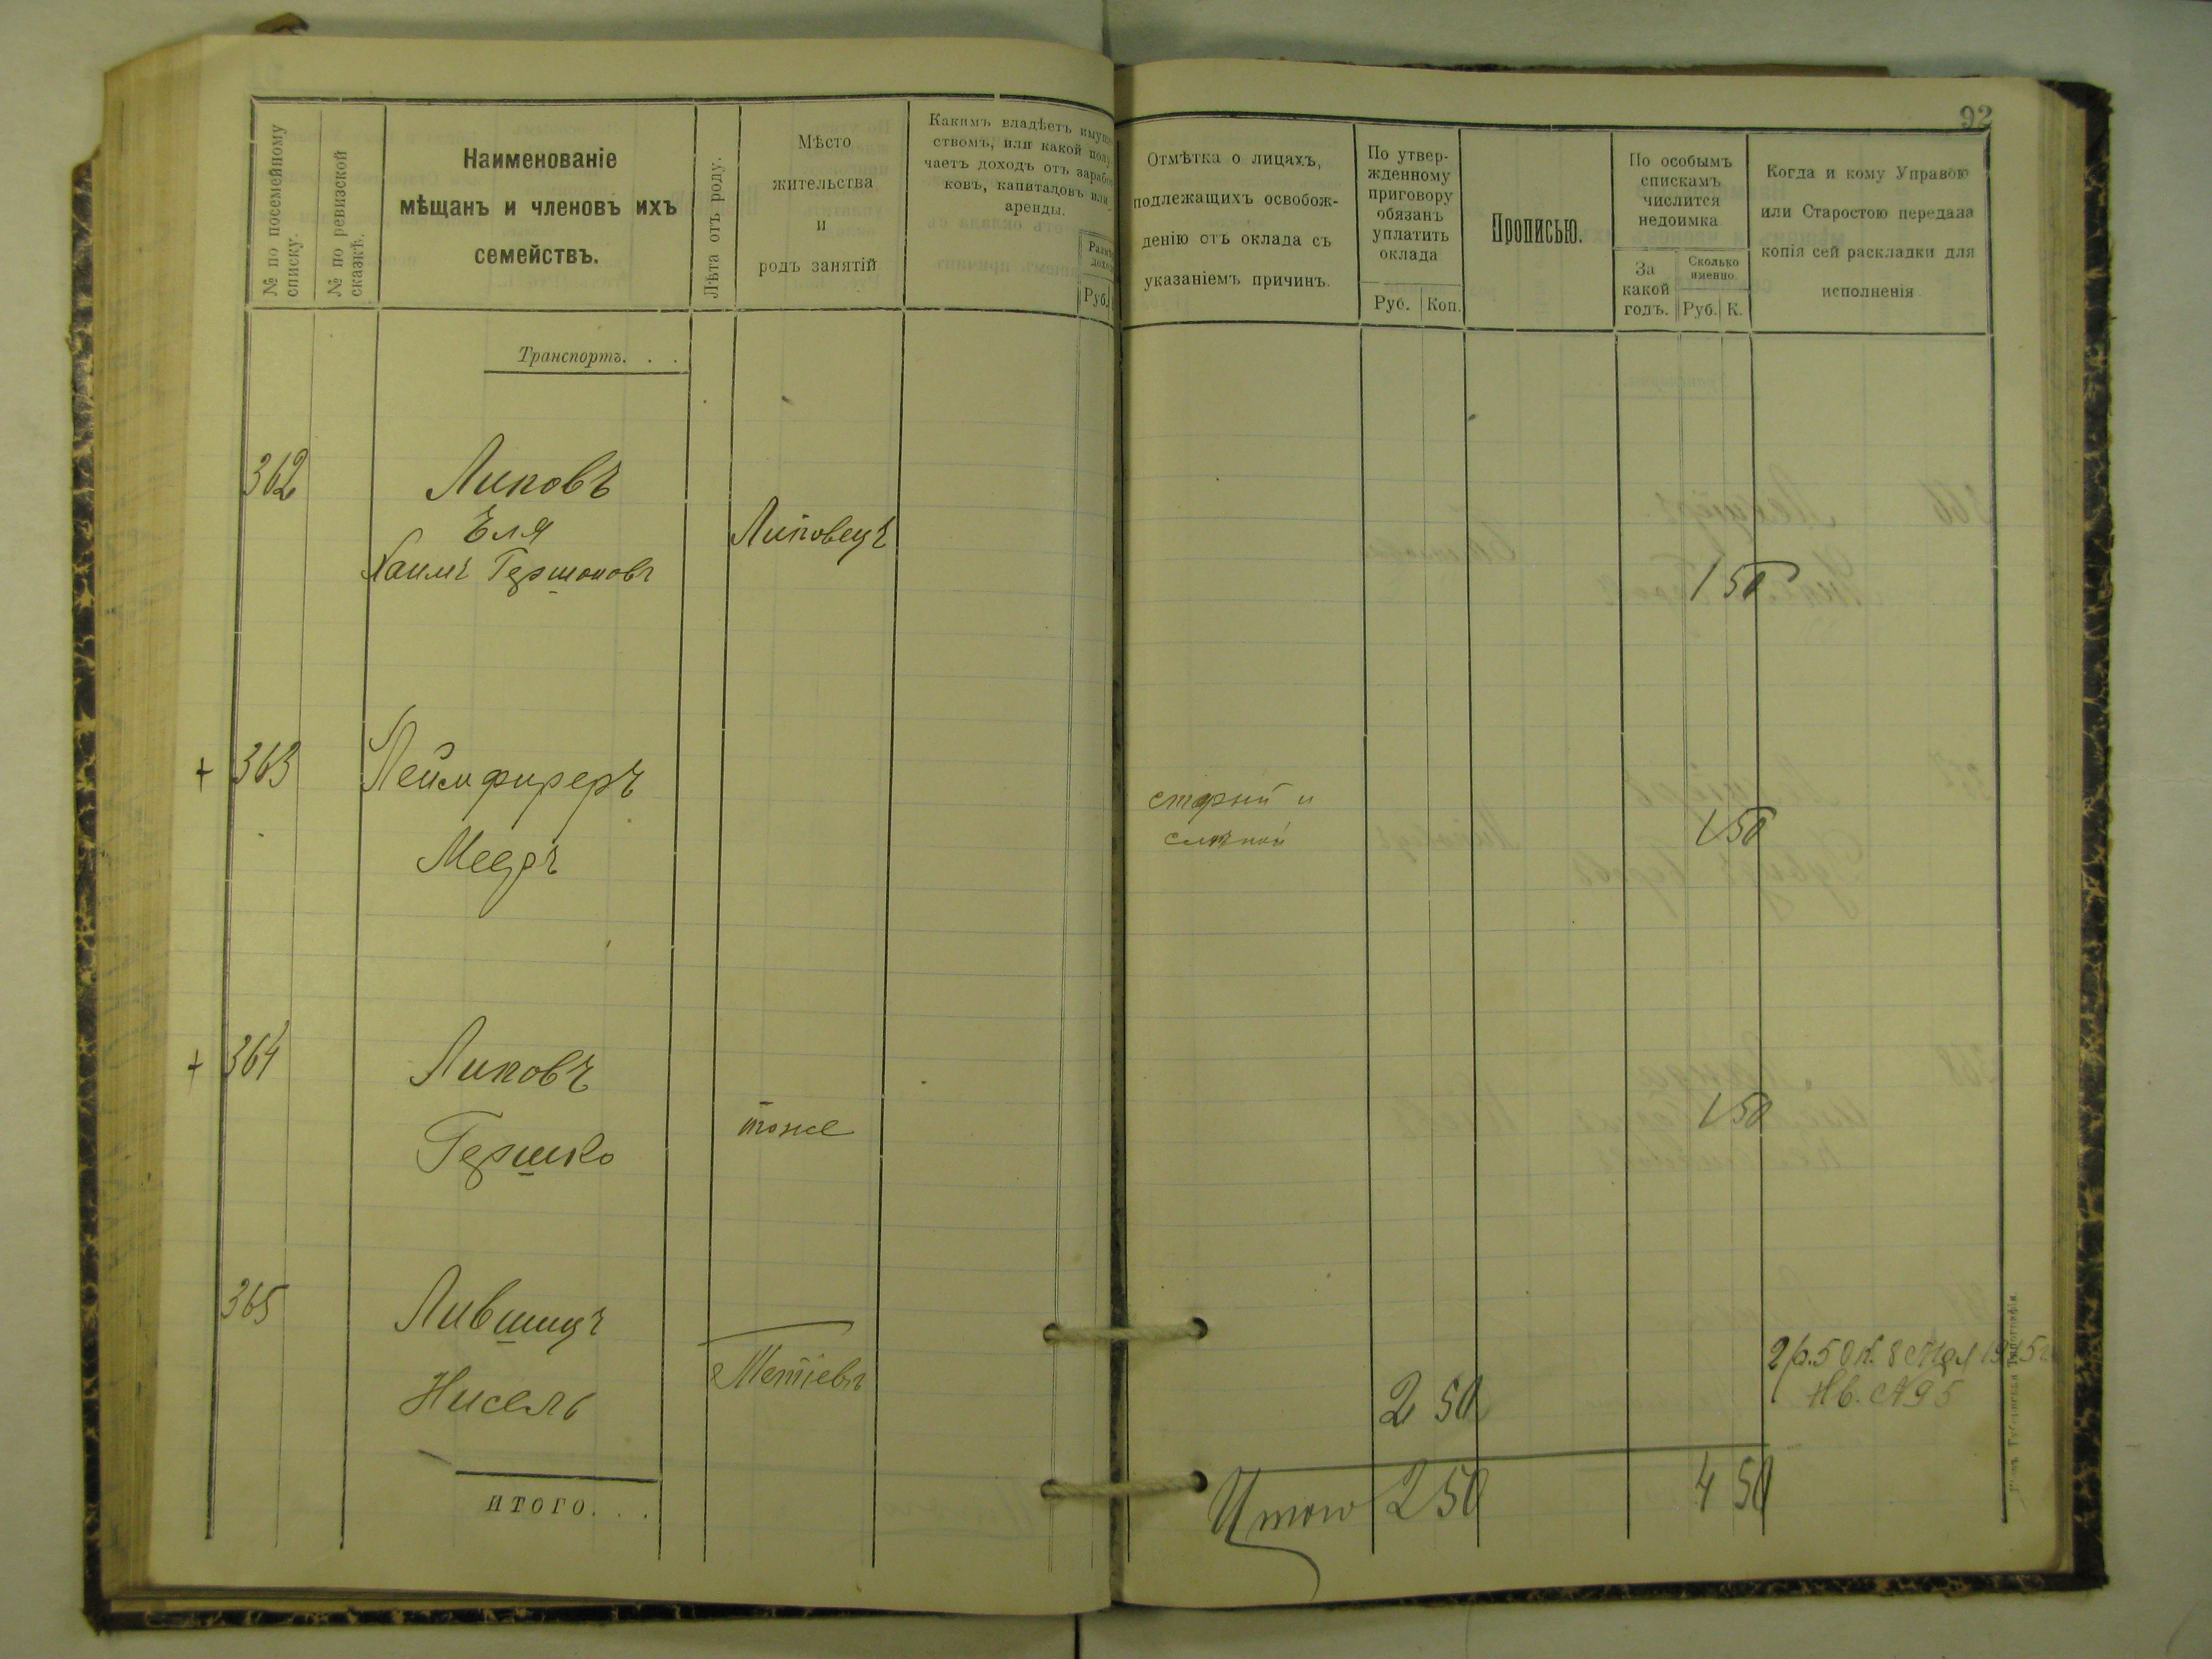 92
№ по посемейному
списку.
№ по ревизской
сказкѣ.
Наименованіе
мѣщанъ и членовъ ихъ
семействъ.
Лѣта отъ роду.
Мѣсто
жительства
и
родъ занятій
Какимъ владѣетъ
ствомъ, или какой
чаетъ доходъ отъ
ковъ, капиталовъ или
аренды.
Руб.
Отмѣтка о лицахъ,
подлежащихъ освобож-
денію отъ оклада съ
указаніемъ причинъ.
По утвер-
жденному
приговору
обязанъ
уплатить
оклада
Руб. Коп.
Прописью.
По особымъ
спискамъ
числится
недоимка
За
какой
годъ.
Сколько
именно.
Руб. К.
Когда и кому Управою
или Старостою передана
копія сей раскладки для
исполненія
Транспортъ. . .
362 Липовъ
Еля
Хаимъ Гершоновъ
Липовецъ
1 50
+ 363
Мееръ
старый и
слѣпой
1 50
+ 364 Липовъ
Гершко
тоже
1 50
365 Лившицъ
Нисель
Тетіевъ
2 50
2 р. 50 к. 8 Мая 1915 г.
Кв. № 95
ИТОГО. . .
Итого 2 50 4 50